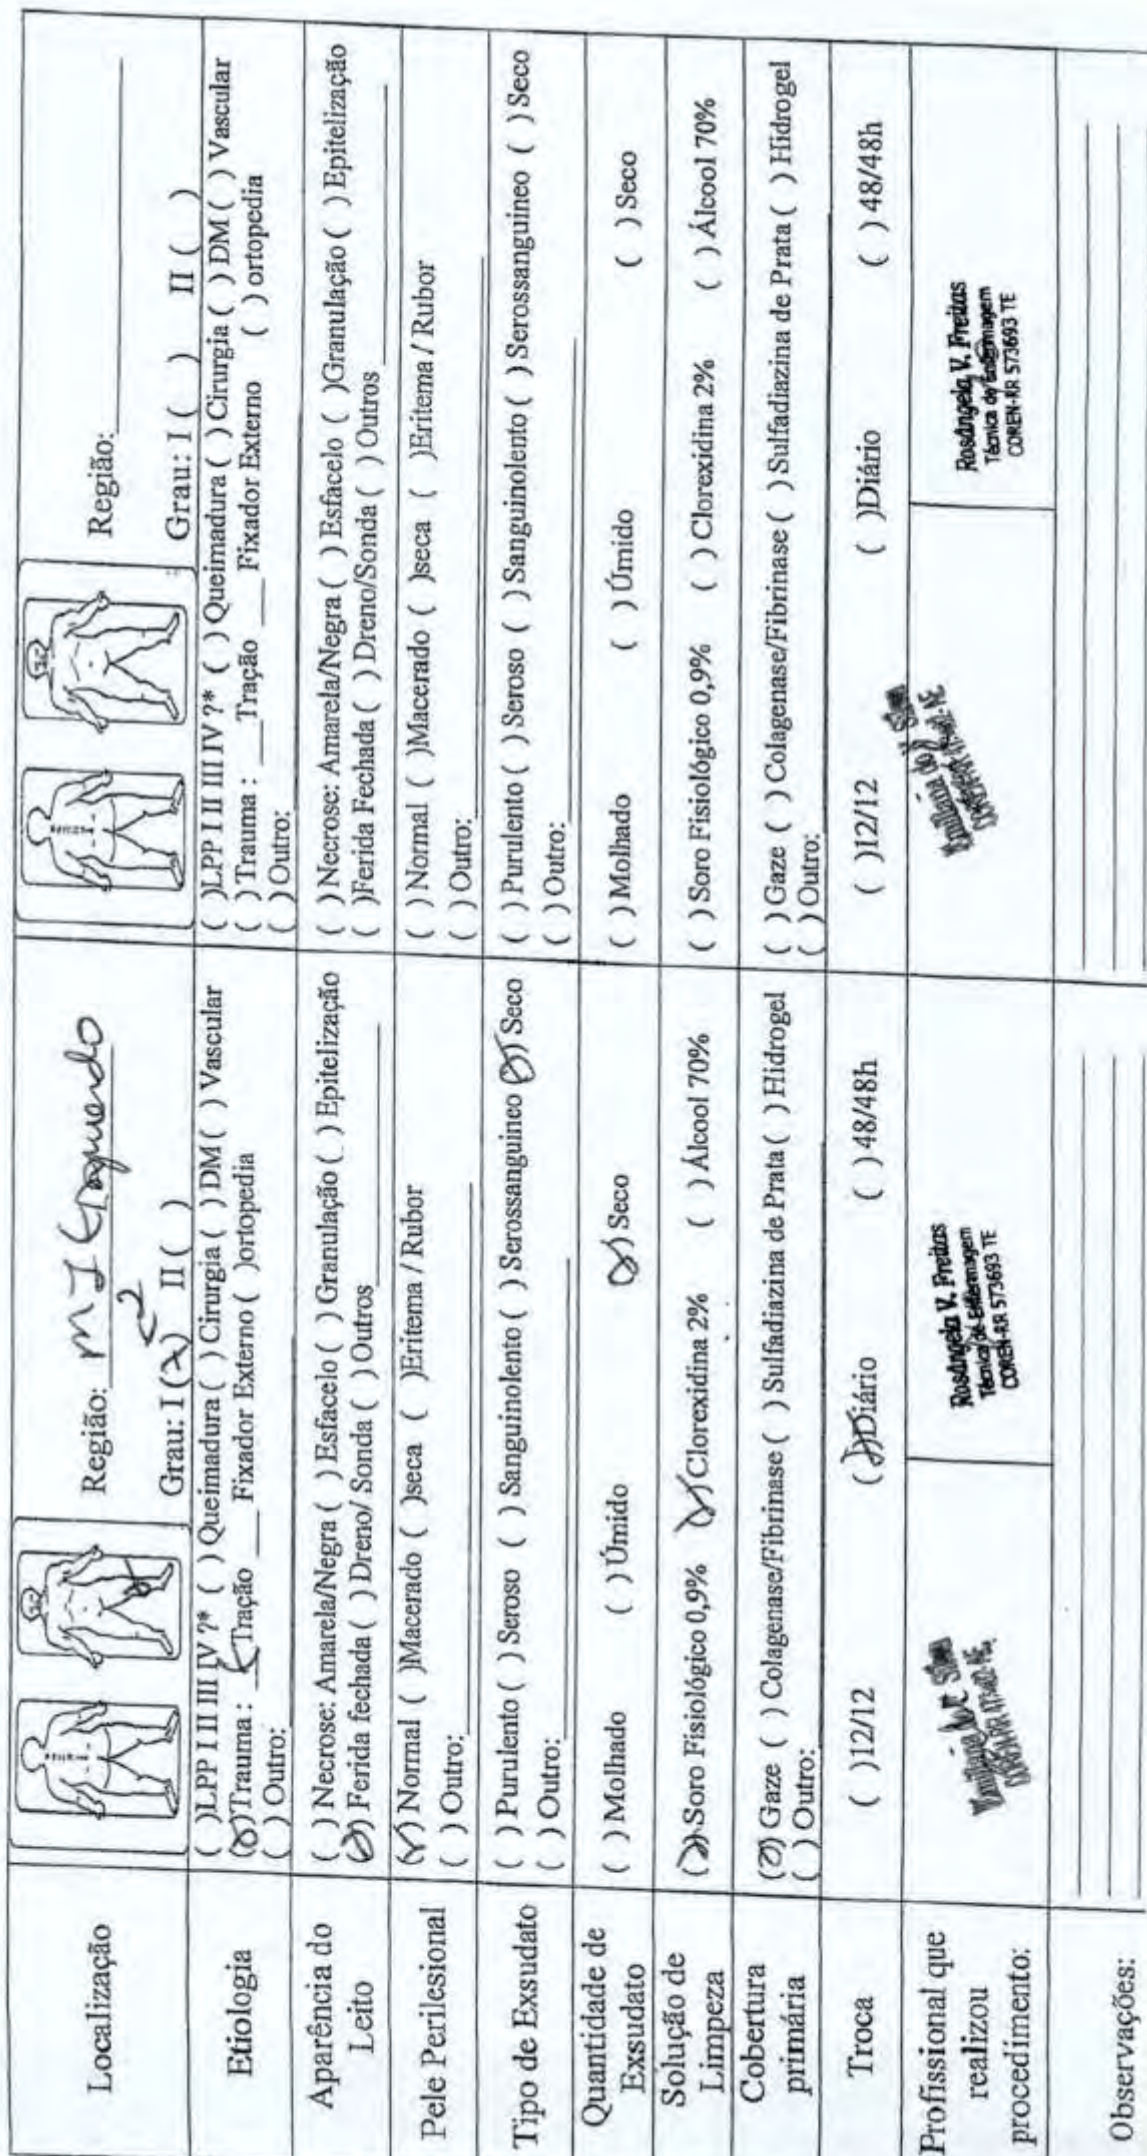 Localização
Região: m I Esquerdo
Grau: I (x) II ( )
2
Região:
Grau: I ( ) II ( )
Etiologia
( )LPP I II III IV ?* ( ) Queimadura ( ) Cirurgia ( ) DM ( ) Vascular
(x)Trauma : Tração ___Fixador Externo ( )ortopedia
( ) Outro:
( )LPP I II III IV ?* ( ) Queimadura ( ) Cirurgia ( ) DM ( ) Vascular
( ) Trauma : ___Tração ___Fixador Externo ( ) ortopedia
( ) Outro:
Aparência do
Leito
( ) Necrose: Amarela/Negra ( ) Esfacelo ( ) Granulação ( ) Epitelização
(x) Ferida fechada ( ) Dreno/ Sonda ( ) Outros
( ) Necrose: Amarela/Negra ( ) Esfacelo ( )Granulação ( ) Epitelização
( )Ferida Fechada ( ) Dreno/Sonda ( ) Outros
Pele Perilesional
(x) Normal ( )Macerado ( )seca ( )Eritema / Rubor
( ) Outro:
( ) Normal ( )Macerado ( )seca ( )Eritema / Rubor
( ) Outro:
Tipo de Exsudato
( ) Purulento ( ) Seroso ( ) Sanguinolento ( ) Serossanguineo (x) Seco
( ) Outro:
( ) Purulento ( ) Seroso ( ) Sanguinolento ( ) Serossanguineo ( ) Seco
( ) Outro:
Quantidade de
Exsudato
( ) Molhado ( ) Úmido (x) Seco
( ) Molhado ( ) Úmido ( ) Seco
Solução de
Limpeza
(x)Soro Fisiológico 0,9% (x)Clorexidina 2% ( ) Álcool 70%
( ) Soro Fisiológico 0,9% ( ) Clorexidina 2% ( ) Álcool 70%
Cobertura
primária
(x) Gaze ( ) Colagenase/Fibrinase ( ) Sulfadiazina de Prata ( ) Hidrogel
( ) Outro:
( ) Gaze ( ) Colagenase/Fibrinase ( ) Sulfadiazina de Prata ( ) Hidrogel
( ) Outro:
Troca
( )12/12 (x)Diário ( ) 48/48h
( )12/12 ( )Diário ( ) 48/48h
Profissional que
realizou
procedimento:
Rosângela V. Freitas
Técnica de Enfermagem
COREN-RR 573693 TE
Rosângela V. Freitas
Técnica de Enfermagem
COREN-RR 573693 TE
Observações: